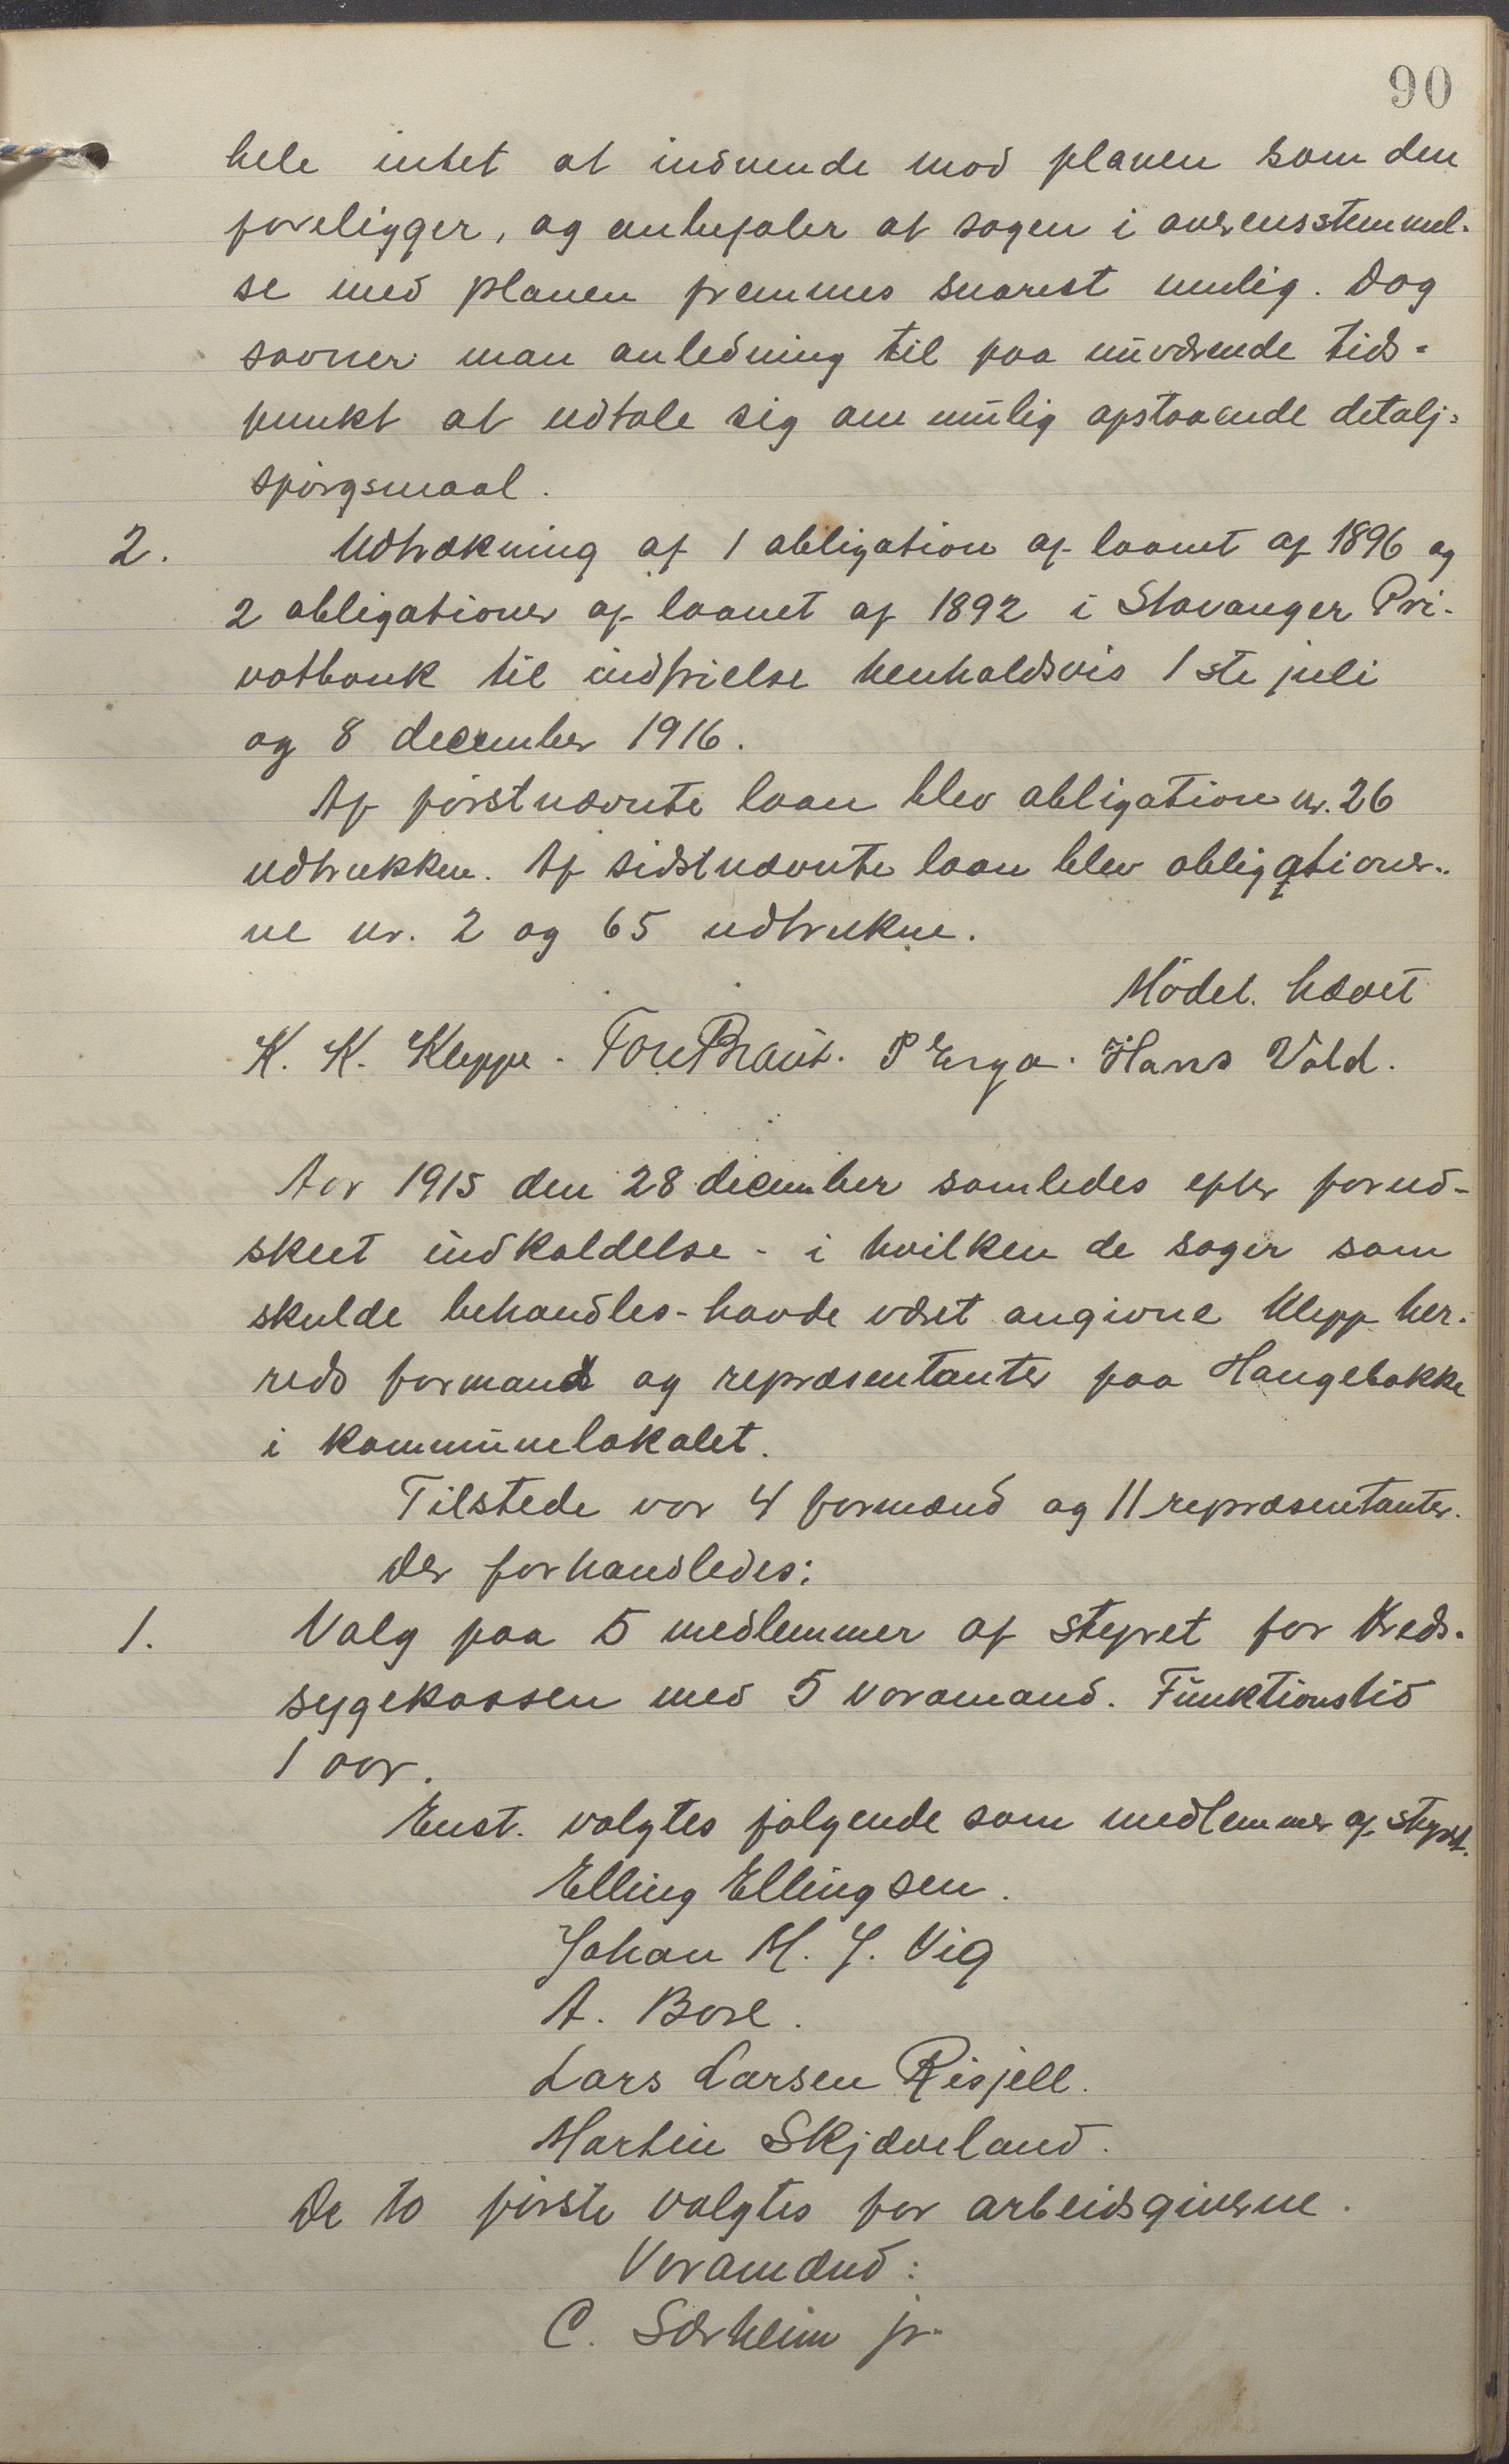 90
hele intet at indvende mod planen som den
foreligger, og anbefaler at sagen i overensstemmel-
se med planen fremmes snarest mulig. Dog
savner man anledning til paa nuværende tids-
punkt at udtale sig om mulig opstaaende detalj-
spörgsmaal.
2. Udtrækning af 1 obligation af laanet af 1896 og
2 obligationer af laanet af 1892 i Stavanger Pri-
vatbank til indfrielse henholdsvis 1ste juli
og 8 december 1916.
Af förstnævnte laan blev obligation nr. 26
udtrukken. Af sidstnævnte laan blev obligationer-
ne nr. 2 og 65 udtrukne.
Mödet hævet
K. K. Kleppe. Tore Braut. P Erga. Hans Vold.
Aar 1915 den 28 december samledes efter forud-
skeet indkaldelse - i hvilken de sager som
skulde behandles - havde været angivne Klepp her-
reds formænd og repræsentanter paa Haugebakke
i kommunelokalet.
Tilstede var 4 formænd og 11 repræsentanter.
Der forhandledes:
1. Valg paa 5 medlemmer af styret for Kreds-
sygekassen med 5 varamænd. Funktionstid
1 aar.
Enst. valgtes fölgende som medlemmer af styret.
Elling Ellingsen.
Johan M. J. Vig
A. Bore.
Lars Larsen Risjell.
Martin Skjæveland.
De to förste valgtes for arbeidsgiverne.
Varamænd:
C. Særheim jr.